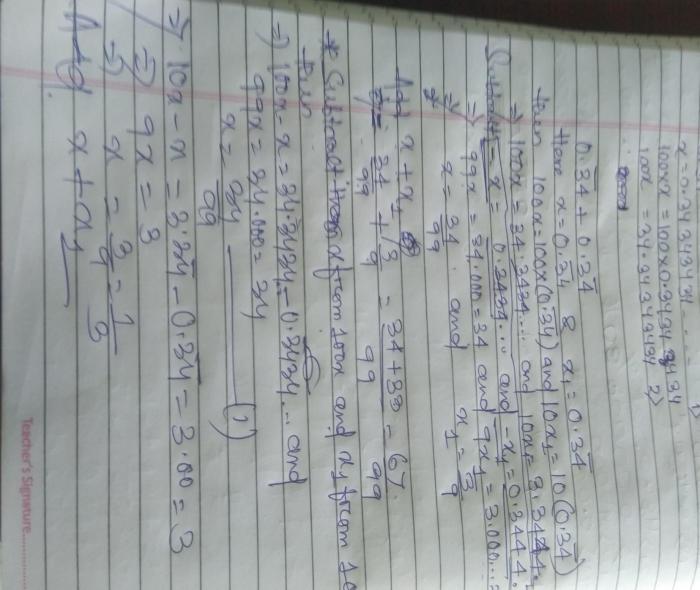 x = 0.34343434 - - -
100xx = 100x0.34343434
100x = 34.34343434
0.3̅4̅ + 0.34̅
Here x = 0.3̅4̅ & x₁ = 0.34̅
then 100x = 100x(0.34) and 10x₁ = 10(0.34̅)
⇒ 100x = 34.3434... and 10x₁ = 3.3444.
Subtract - x = 0.3434... and - x₁ = 0.3444.
⇒ 99x = 34.000 = 34 and 9x₁ = 3.000...
⇒ x = 34/99 and x₁ = 3/9
Add x + x₁
34/99 + 3/9 = 34+33/99 = 67/99
* Subtract x from 100x and x₁ from 10
then
⇒ 100x - x = 34.3434 - 0.3434... and
99x = 34.000 = 34
x = 34/99 (1)
⇒ 10x - x = 3.34̅ - 0.34̅ = 3.00 = 3
⇒ 9x = 3
⇒ x = 3/9 = 1/3
Add x + x₁
Teacher's Signature..............